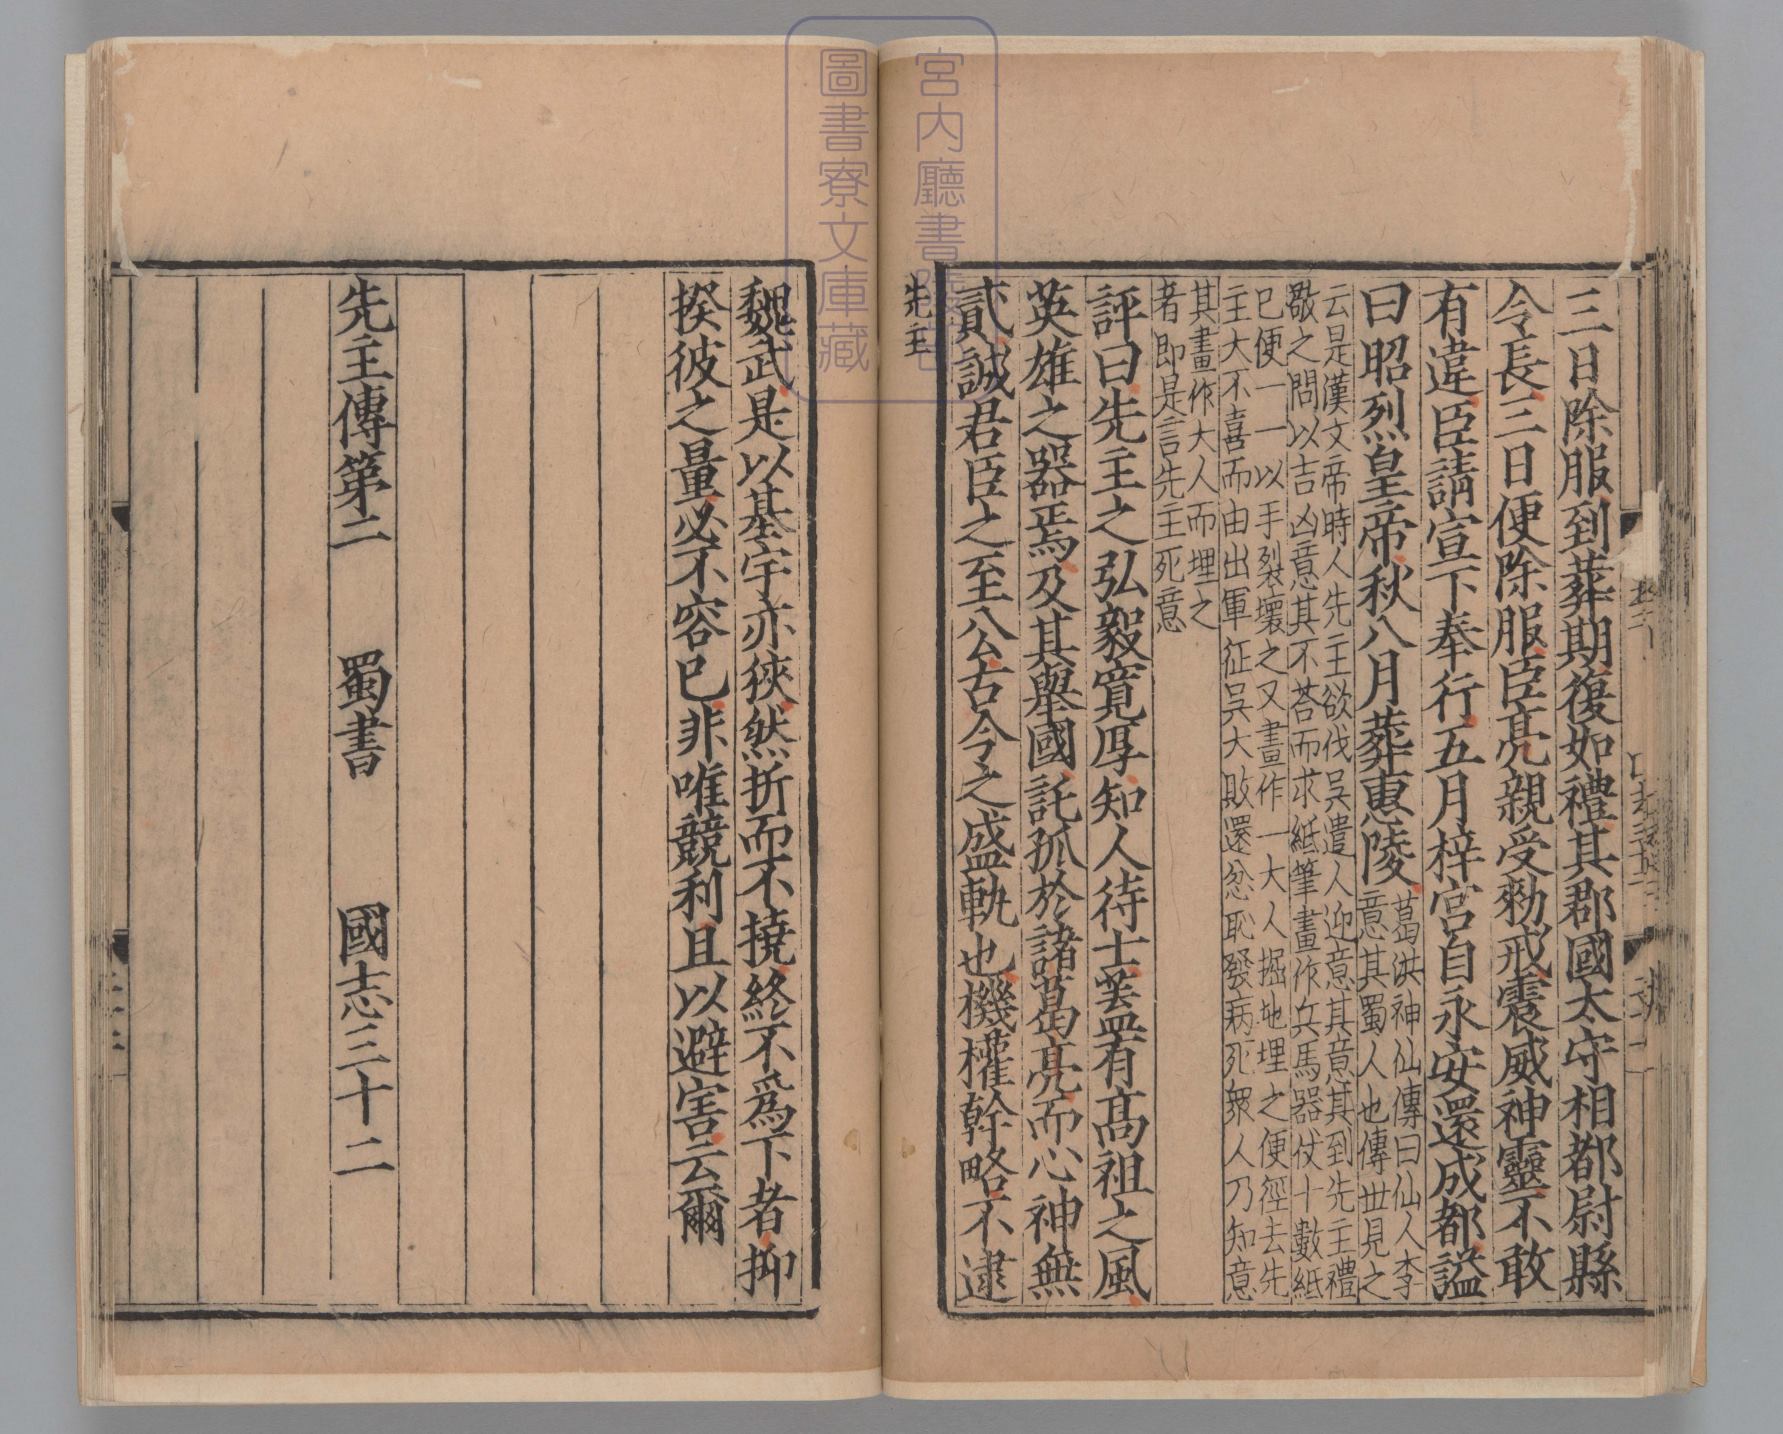 三日除服到葬期復如禮其郡國太守相都尉縣
令長三日便除服臣亮親受勑戒震威神靈不敢
有違臣請宣下奉行五月梓宮自永安還成都謚
曰昭烈皇帝秋八月葬惠陵
葛洪神仙傳曰仙人李
意其蜀人也傳丗見之
云是漢文帝時人先主欲伐吳遣人迎意其意其到先主禮
敬之問以吉凶意其不荅而求紙筆畫作兵馬器仗十數紙
已便一一以手裂壞之又畫作一大人掘地埋之便徑去先
主大不喜而由出軍征吳大敗還忿恥發病死衆人乃知意
其畫作大人而埋之
者即是言先主死意
評曰先主之弘毅寬厚知人待士蓋有高祖之風
英雄之器焉及其舉國託孤於諸葛亮而心神無
貳誠君臣之至公古今之盛軌也機權幹略不逮
先主
魏武是以基宇亦狹然折而不撓終不爲下者抑
揆彼之量必不容已非唯競利且以避害云爾
先主傳第二　蜀書　國志三十二
宮内廳書陵部
圖書寮文庫藏